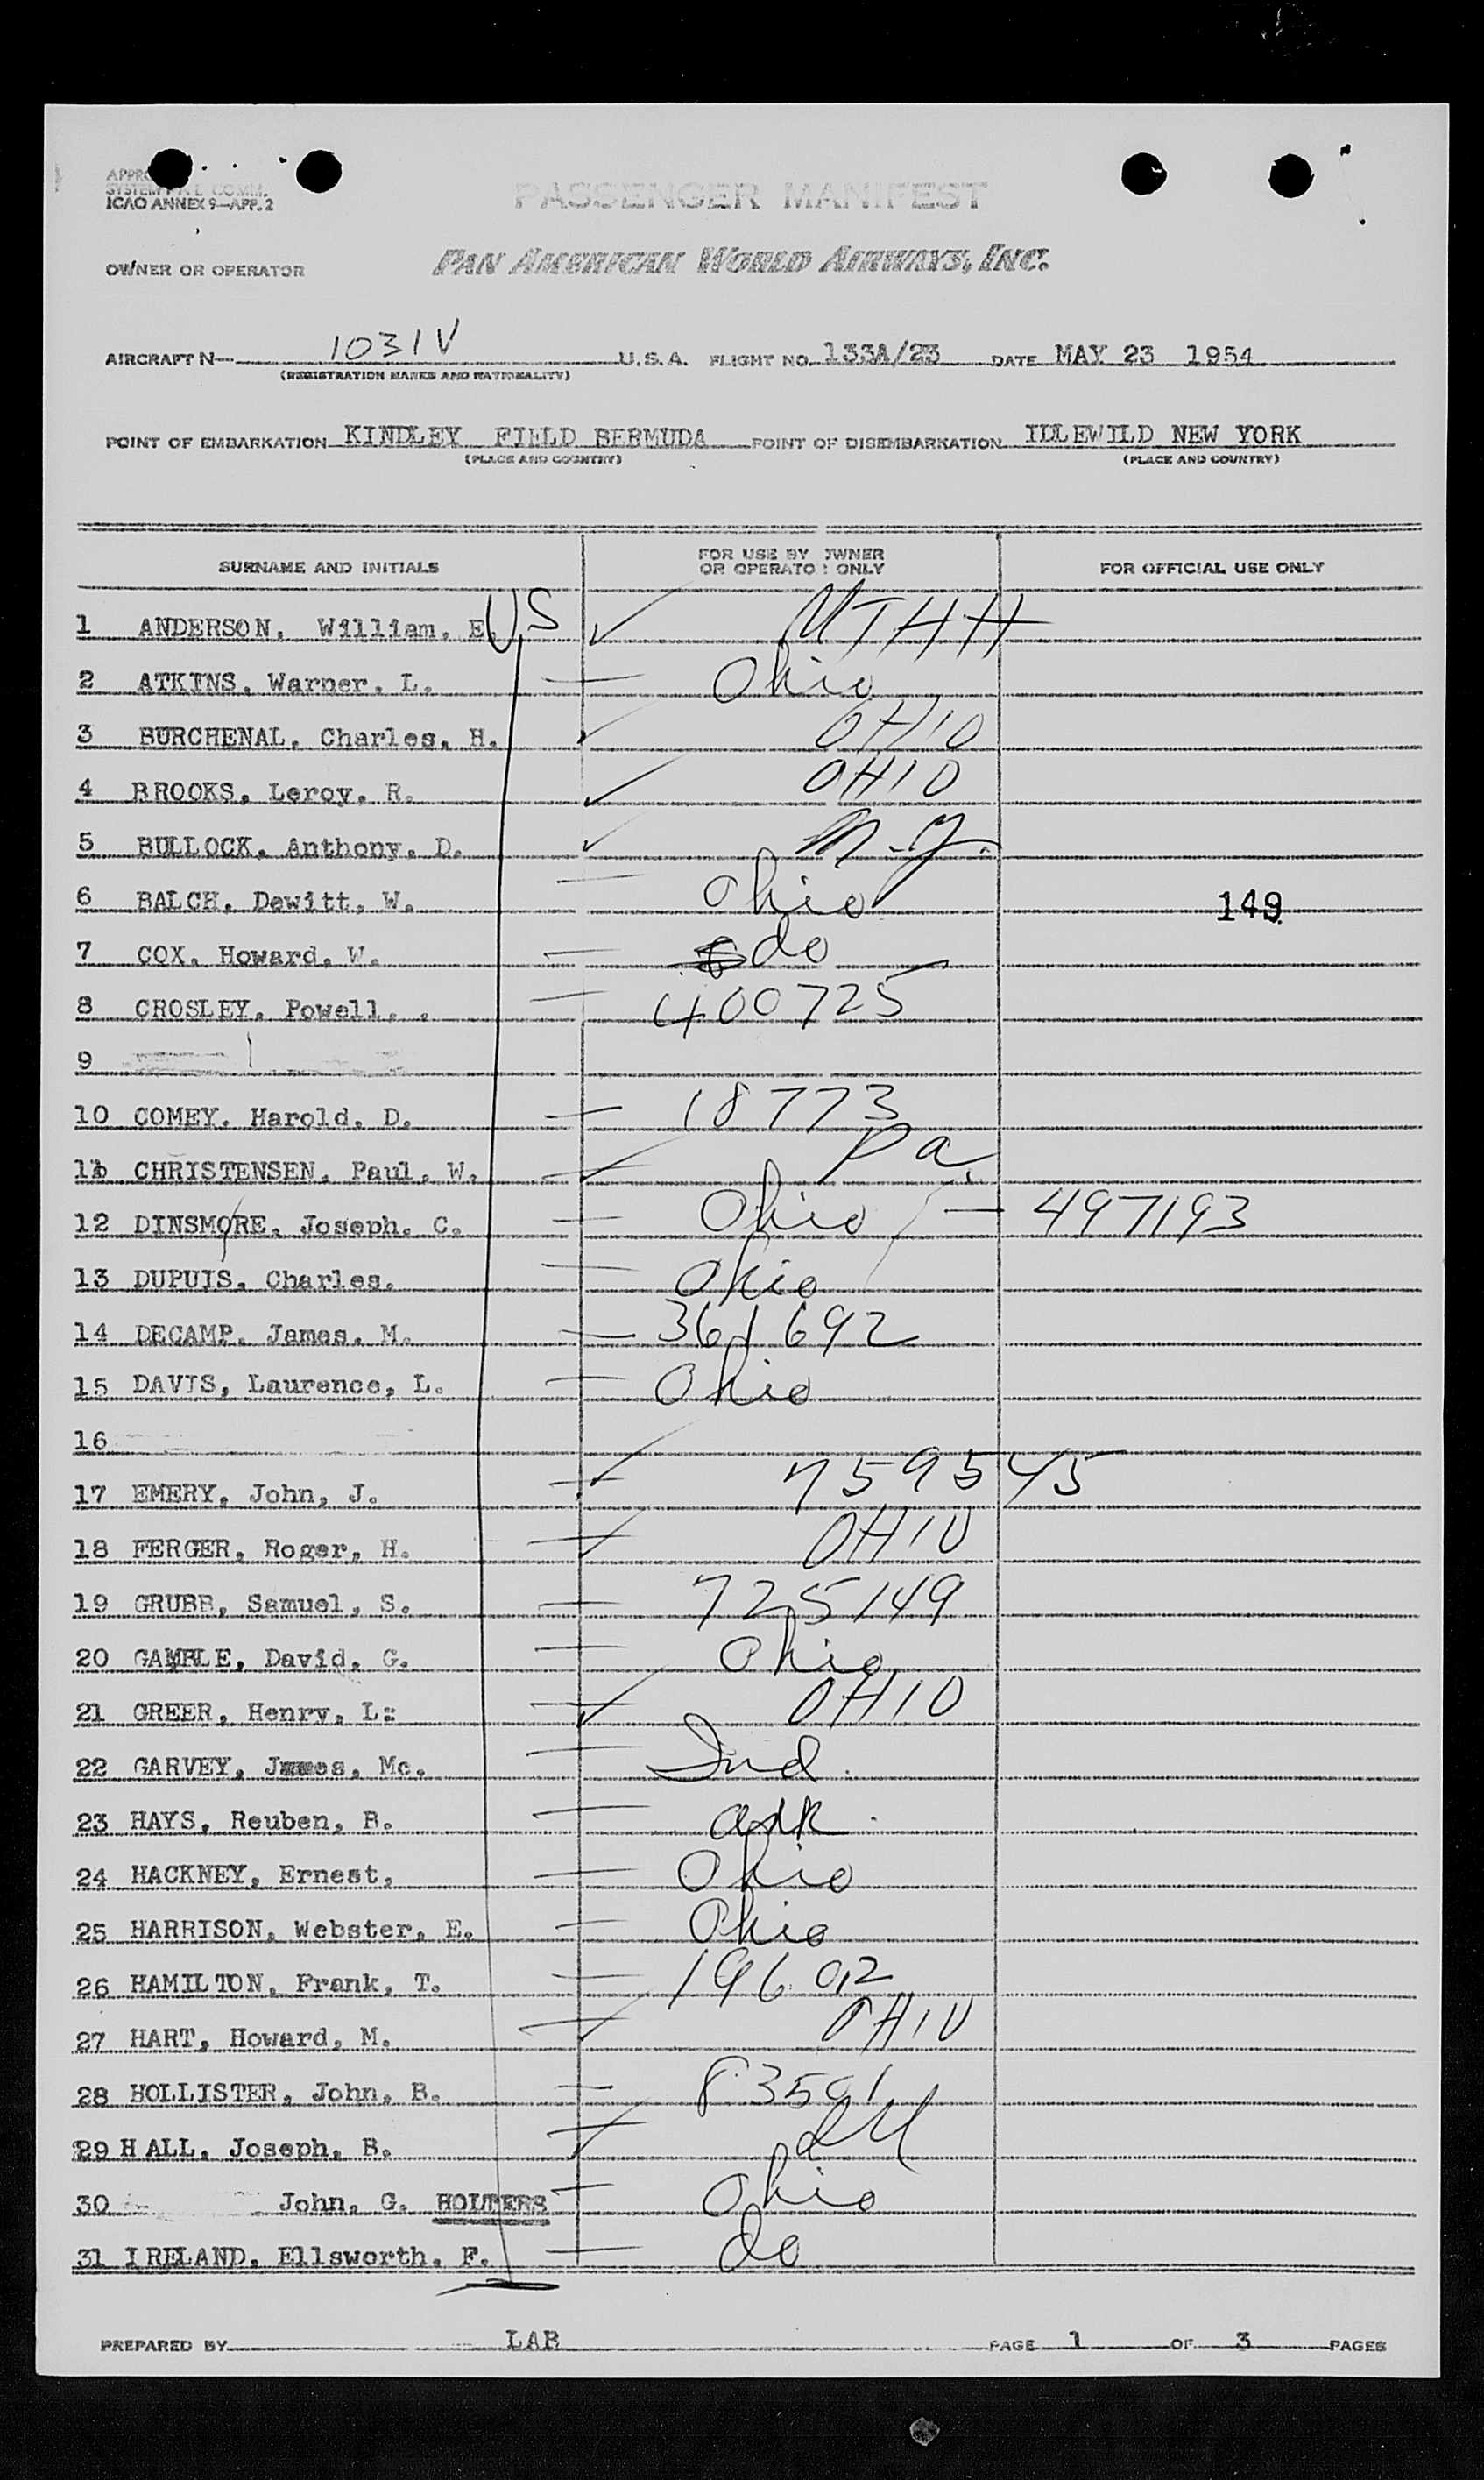 ICAO ANNEX 9—APP. 2
PASSENGER MANIFEST
OWNER OR OPERATOR PAN AMERICAN WORLD AIRWAYS, INC.
AIRCRAFT N— 1031V U.S.A. FLIGHT NO. 133A/23 DATE MAY 23 1954
(REGISTRATION MARKS AND NATIONALITY)
POINT OF EMBARKATION KINDLEY FIELD BERMUDA POINT OF DISEMBARKATION IDLEWILD NEW YORK
(PLACE AND COUNTRY) (PLACE AND COUNTRY)
SURNAME AND INITIALS FOR USE BY OWNER OR OPERATOR ONLY FOR OFFICIAL USE ONLY
1 ANDERSON. William. E. US MTHH
2 ATKINS. Warner. L. Ohio
3 BURCHENAL. Charles. H. OHIO
4 BROOKS. Leroy. R. OHIO
5 BULLOCK. Anthony. D. N.Y.
6 BALCH. Dewitt. W. Ohio 149
7 COX. Howard. W. do
8 CROSLEY. Powell. . 400725
9
10 COMEY. Harold. D. 18773
11 CHRISTENSEN. Paul. W. Pa.
12 DINSMORE. Joseph. C. Ohio — 497193
13 DUPUIS. Charles. Ohio
14 DECAMP. James. M. 361692
15 DAVIS, Laurence, L. Ohio
16
17 EMERY, John, J. 759545
18 FERGER, Roger, H. OHIO
19 GRUBB, Samuel, S. 725149
20 GAMBLE, David, G. Ohio
21 GREER, Henry, L: OHIO
22 GARVEY, James, Mc. Ind.
23 HAYS, Reuben, B. ark.
24 HACKNEY, Ernest, Ohio
25 HARRISON, Webster, E. Ohio
26 HAMILTON, Frank, T. 196012
27 HART, Howard, M. OHIO
28 HOLLISTER, John, B.
29 HALL, Joseph, B. Ill
30 John, G. HOLTERS Ohio
31 IRELAND, Ellsworth. F. do
PREPARED BY LAR PAGE 1 OF 3 PAGES